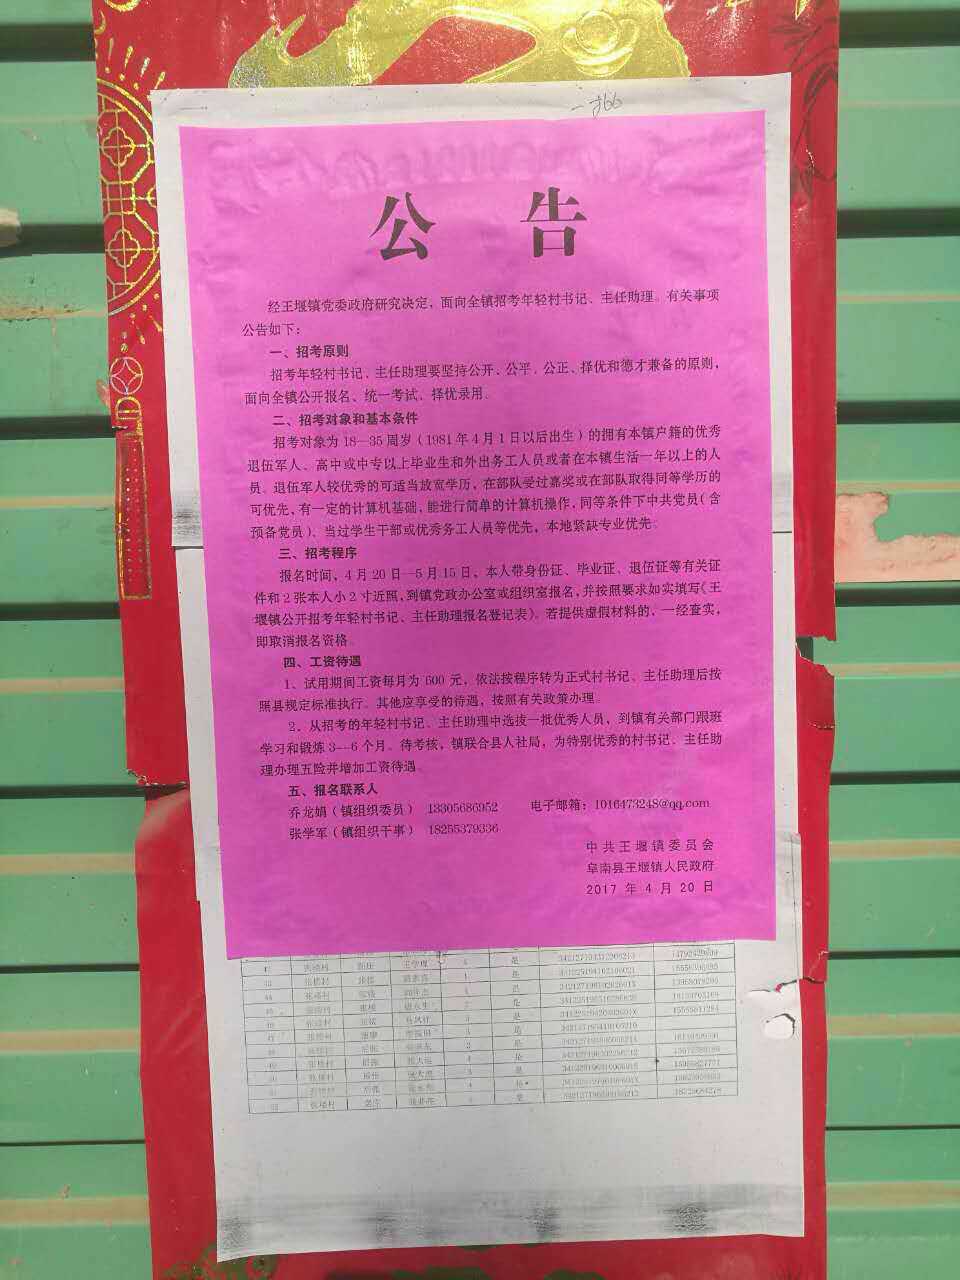 公 告
经王堰镇党委政府研究决定，面向全镇招考年轻村书记、主任助理。有关事项
公告如下：
一、招考原则
招考年轻村书记、主任助理要坚持公开、公平、公正、择优和德才兼备的原则，
面向全镇公开报名、统一考试、择优录用。
二、招考对象和基本条件
招考对象为18—35周岁（1981年4月1日以后出生）的拥有本镇户籍的优秀
退伍军人、高中或中专以上毕业生和外出务工人员或者在本镇生活一年以上的人
员。退伍军人较优秀的可适当放宽学历，在部队受过嘉奖或在部队取得同等学历的
可优先，有一定的计算机基础，能进行简单的计算机操作，同等条件下中共党员（含
预备党员）、当过学生干部或优秀务工人员等优先，本地紧缺专业优先。
三、招考程序
报名时间，4月20日—5月15日，本人带身份证、毕业证、退伍证等有关证
件和2张本人小2寸近照，到镇党政办公室或组织室报名，并按照要求如实填写《王
堰镇公开招考年轻村书记、主任助理报名登记表》。若提供虚假材料的，一经查实，
即取消报名资格。
四、工资待遇
1、试用期间工资每月为600元，依法按程序转为正式村书记、主任助理后按
照县规定标准执行。其他应享受的待遇，按照有关政策办理。
2、从招考的年轻村书记、主任助理中选拔一批优秀人员，到镇有关部门跟班
学习和锻炼3—6个月。待考核，镇联合县人社局，为特别优秀的村书记、主任助
理办理五险并增加工资待遇。
五、报名联系人
乔龙娟（镇组织委员） 13305686952 电子邮箱：1016473248@qq.com
张学军（镇组织干事） 18255379336
中共王堰镇委员会
阜南县王堰镇人民政府
2017年4月20日